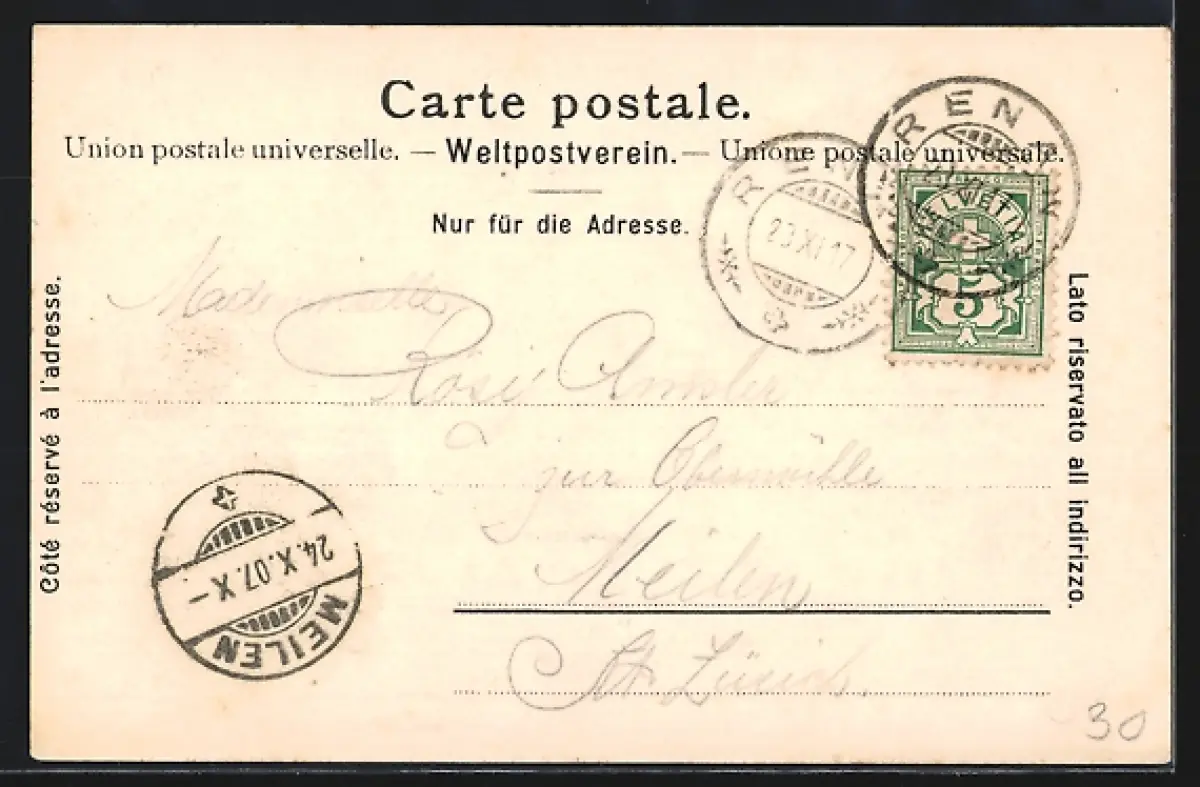 Carte postale.
Union postale universelle. — Weltpostverein. — Unione postale universale.
Nur für die Adresse.
Côté réservé à l'adresse.
Lato riservato all indirizzo.
REN
REN
HELVETIA
5
Mademoiselle
Rosi
zur Obermühle
Meilen
Kt. Zürich
24.X.07.X–
MEILEN
30